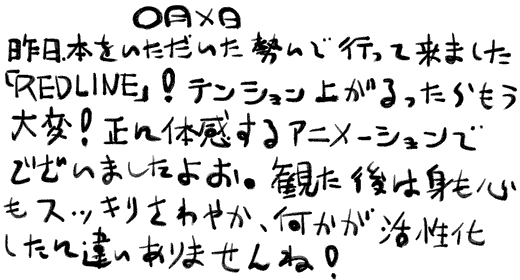 〇月×日
昨日、本をいただいた勢いで行って来ました
「REDLINE」！テンション上がるったらもう
大変！正に体感するアニメーションで
ございましたよお。観た後は身も心
もスッキリさわやか、何かが活性化
したに違いありませんね！